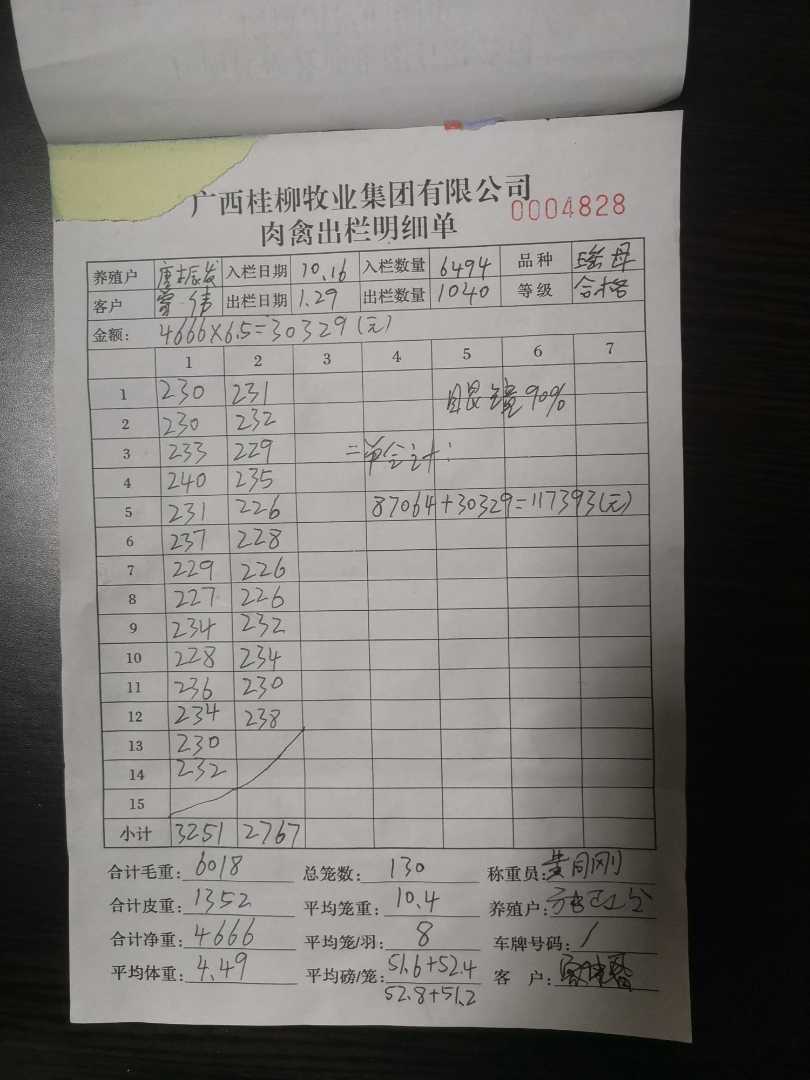 广西桂柳牧业集团有限公司
肉禽出栏明细单 0004828
养殖户 唐振发 入栏日期 10.16 入栏数量 6494 品种 瑶母
客户 曾伟 出栏日期 1.29 出栏数量 1040 等级 合格
金额: 4666×6.5=30329(元)
1 2 3 4 5 6 7
1 230 231 眼镜90%
2 230 232
3 233 229 二单合计:
4 240 235
5 231 226 87064+30329=117393(元)
6 237 228
7 229 226
8 227 226
9 234 232
10 228 234
11 236 230
12 234 238
13 230
14 232
15
小计 3251 2767
合计毛重: 6018 总笼数: 130 称重员: 黄同刚
合计皮重: 1352 平均笼重: 10.4 养殖户:
合计净重: 4666 平均笼/羽: 8 车牌号码: /
平均体重: 4.49 平均磅/笼: 51.6+52.4 客户:
52.8+51.2